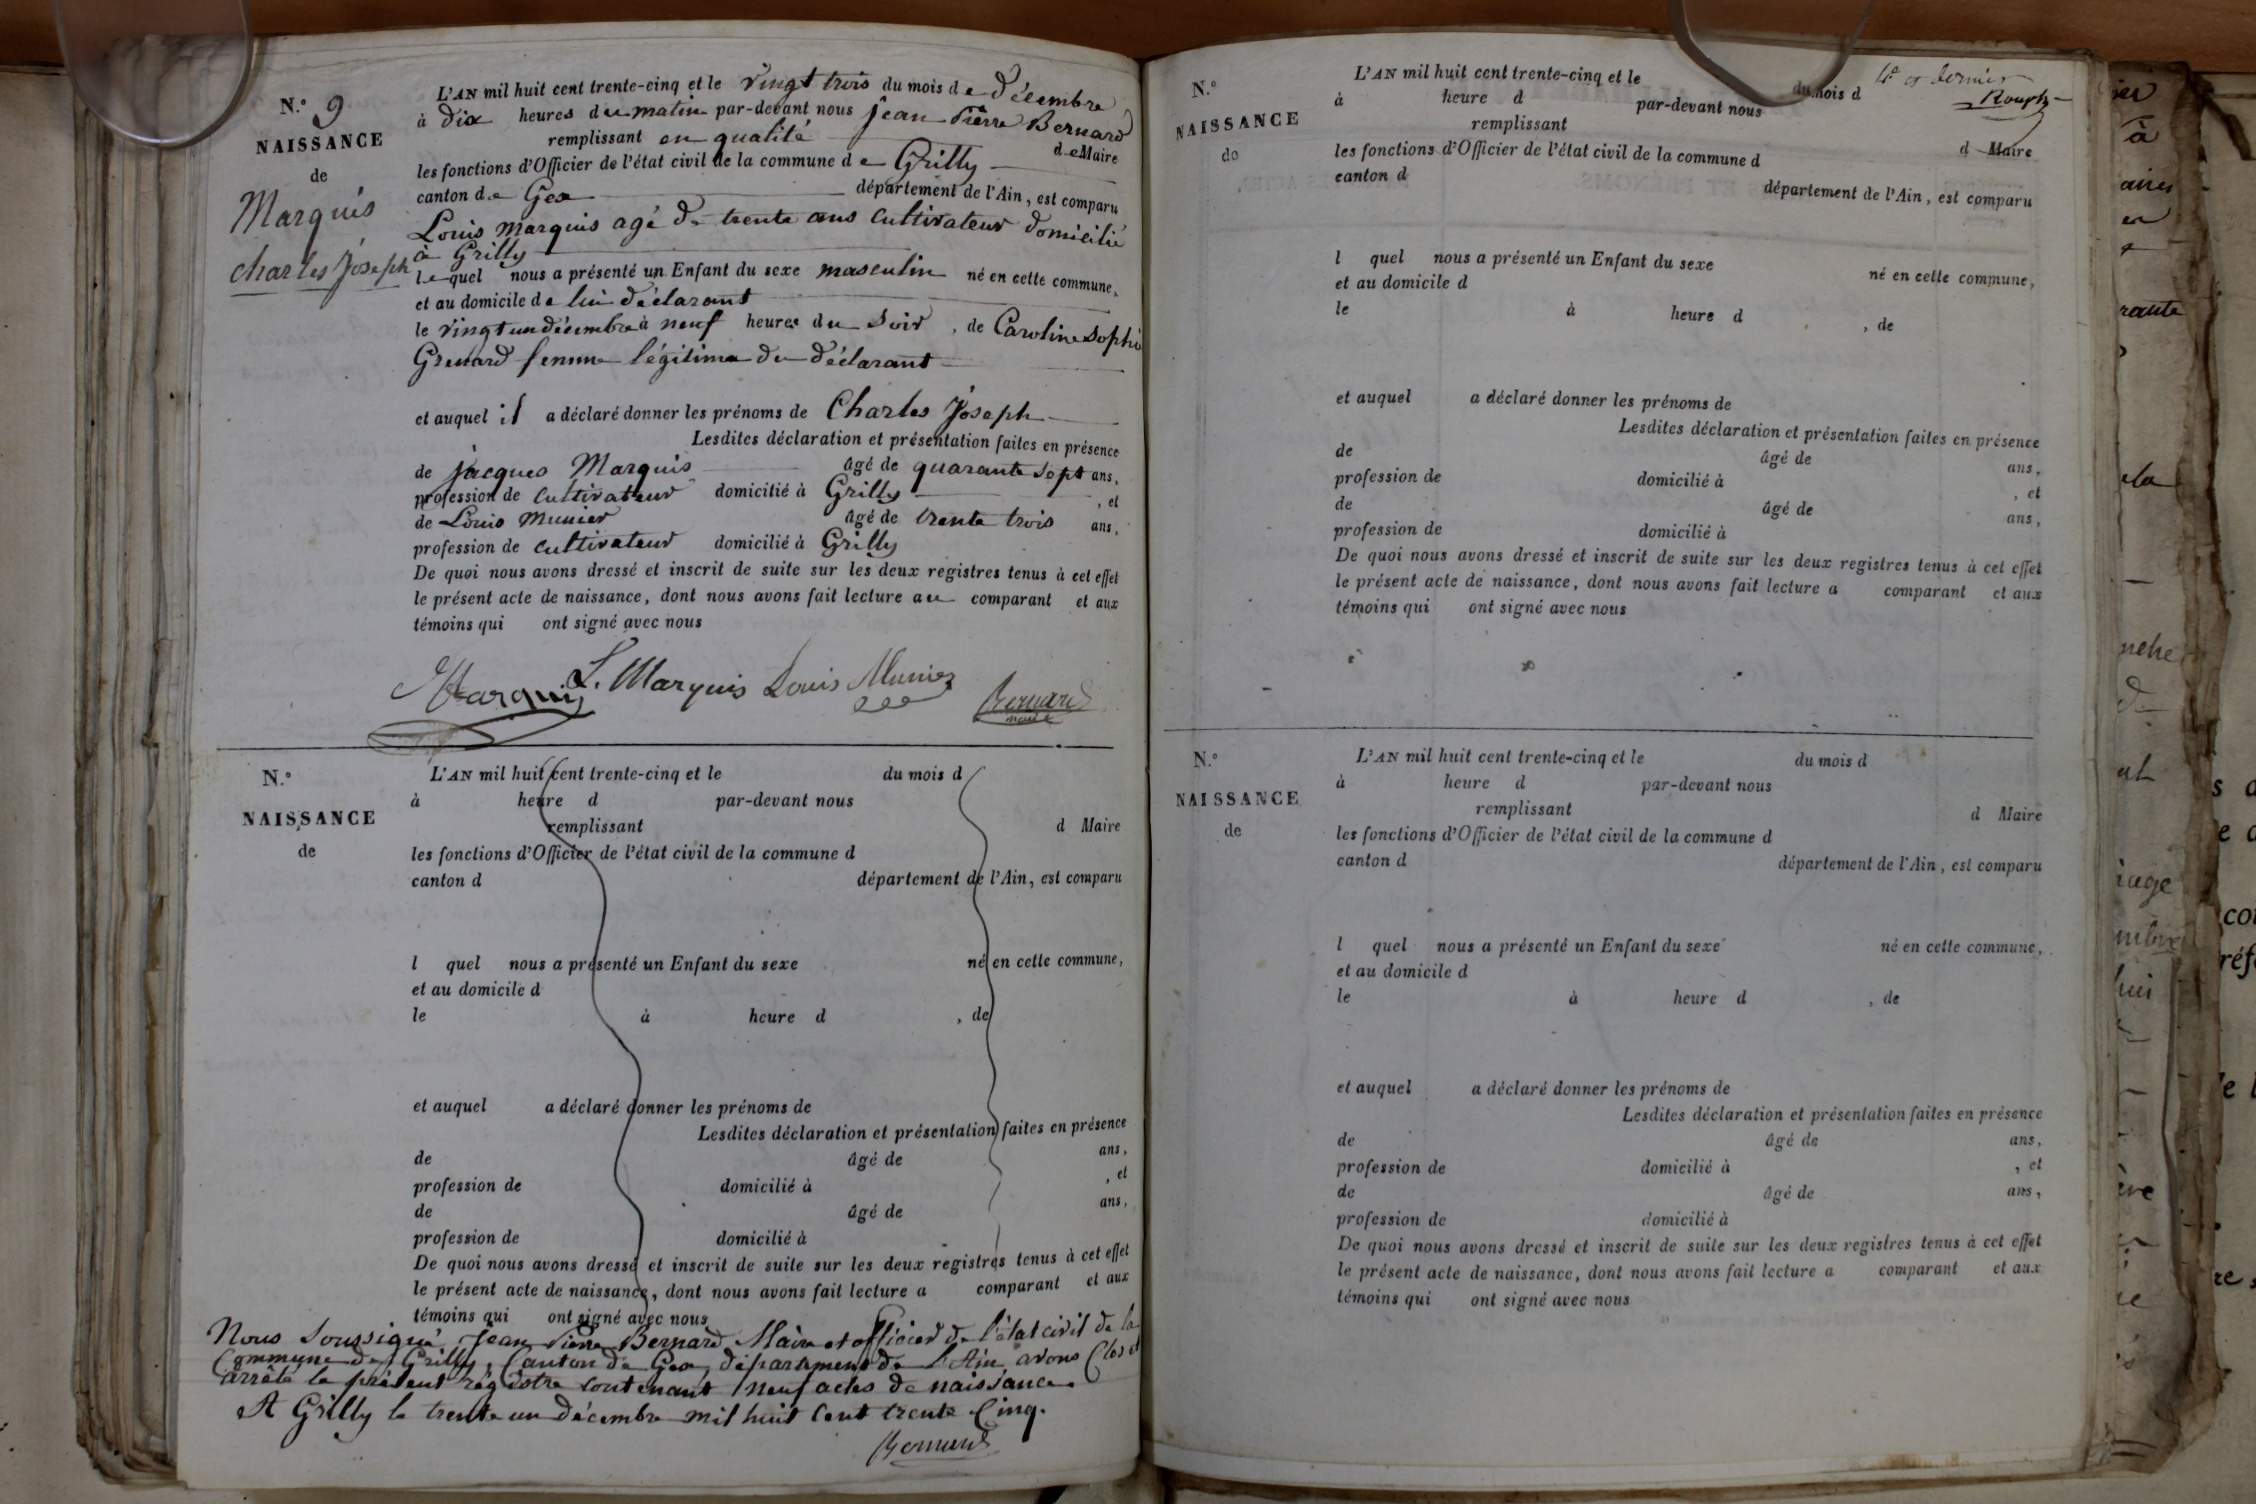 N.° 9
NAISSANCE
de
Marquis
Charles Joseph
L'AN mil huit cent trente-cinq et le vingt trois du mois de décembre
à dix heures du matin par-devant nous jean Pierre Bernard
remplissant en qualité de Maire
les fonctions d'Officier de l'état civil de la commune de Grilly
canton de Gex département de l'Ain, est comparu
Louis Marquis agé de trente ans cultivateur domicilié
à Grilly
lequel nous a présenté un Enfant du sexe masculin né en cette commune,
et au domicile de lui déclarant
le vingt un décembre à neuf heures du soir, de Caroline Sophie
Grenard femme légitime du déclarant
et auquel il a déclaré donner les prénoms de Charles Joseph
Lesdites déclaration et présentation faites en présence
de jacques Marquis âgé de quarante sept ans,
profession de cultivateur domicilié à Grilly, et
de Louis Munier âgé de trente trois ans,
profession de cultivateur domicilié à Grilly
De quoi nous avons dressé et inscrit de suite sur les deux registres tenus à cet effet
le présent acte de naissance, dont nous avons fait lecture au comparant et aux
témoins qui ont signé avec nous
Marquis L. Marquis Louis Munier Bernard
maire
N.°
NAISSANCE
de
L'AN mil huit cent trente-cinq et le du mois d
à heure d par-devant nous
remplissant d Maire
les fonctions d'Officier de l'état civil de la commune d
canton d département de l'Ain, est comparu
l quel nous a présenté un Enfant du sexe né en cette commune,
et au domicile d
le à heure d , de
et auquel a déclaré donner les prénoms de
Lesdites déclaration et présentation faites en présence
de âgé de ans,
profession de domicilié à , et
de âgé de ans,
profession de domicilié à
De quoi nous avons dressé et inscrit de suite sur les deux registres tenus à cet effet
le présent acte de naissance, dont nous avons fait lecture a comparant et aux
témoins qui ont signé avec nous
Nous soussigné Jean Pierre Bernard Maire et officier de l'état civil de la
Commune de Grilly, Canton de Gex, département de l'Ain, avons Clos et
arrêté le présent régistre contenant neuf actes de naissance.
A Grilly le trente un décembre mil huit cent trente Cinq.
Bernard
4e et dernier
N.°
NAISSANCE
de
L'AN mil huit cent trente-cinq et le du mois d
à heure d par-devant nous
remplissant d Maire
les fonctions d'Officier de l'état civil de la commune d
canton d département de l'Ain, est comparu
l quel nous a présenté un Enfant du sexe né en cette commune,
et au domicile d
le à heure d , de
et auquel a déclaré donner les prénoms de
Lesdites déclaration et présentation faites en présence
de âgé de ans,
profession de domicilié à , et
de âgé de ans,
profession de domicilié à
De quoi nous avons dressé et inscrit de suite sur les deux registres tenus à cet effet
le présent acte de naissance, dont nous avons fait lecture a comparant et aux
témoins qui ont signé avec nous
N.°
NAISSANCE
de
L'AN mil huit cent trente-cinq et le du mois d
à heure d par-devant nous
remplissant d Maire
les fonctions d'Officier de l'état civil de la commune d
canton d département de l'Ain, est comparu
l quel nous a présenté un Enfant du sexe né en cette commune,
et au domicile d
le à heure d , de
et auquel a déclaré donner les prénoms de
Lesdites déclaration et présentation faites en présence
de âgé de ans,
profession de domicilié à , et
de âgé de ans,
profession de domicilié à
De quoi nous avons dressé et inscrit de suite sur les deux registres tenus à cet effet
le présent acte de naissance, dont nous avons fait lecture a comparant et aux
témoins qui ont signé avec nous